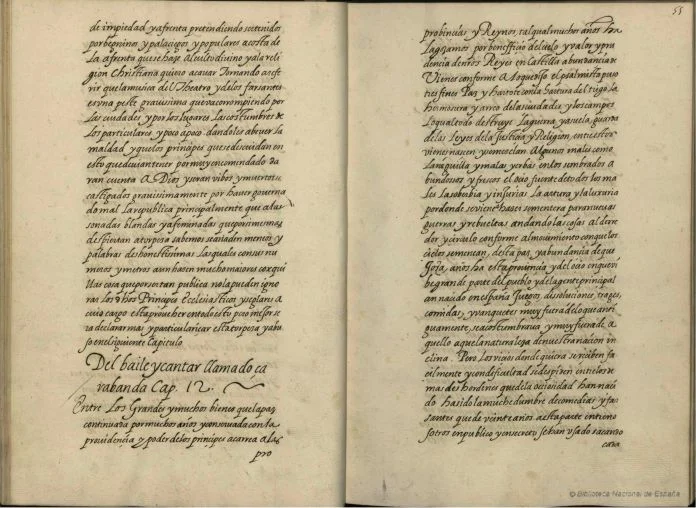 de impiedad y afrenta pretendiendo ser tenidos
por benninos y palaciegos y populares a costa de
la afrenta que se haze al culto divino y a la reli
gion christiana quiero acavar tornando a refe
rir que la musica del theatro y de los farsantes
es una peste gravissima que va corrompiendo por
las ciudades y por los lugares las costumbres de
los particulares, y poco a poco dandoles a bever la
maldad y que los principes que se descuidan en
esto que devian tener por muy encomendado da
ran cuenta a Dios y seran vibos y muertos
castigados gravissimamente por haver governa
do mal la republica principalmente que a las
sonadas blandas y afeminadas que por si mesmas
despiertan a torpeza sabemos se añaden meneos y
palabras deshonestissimas las quales con sus nu
meros y metros aun hazen mucho mayores
cosa que por ser tan publica no la pueden igno
rar los dichos Principes Ecclesiasticos y seglares a
cuio cargo esta proveher en todo esto pero mejor se
ra declarar mas y particularizar esta torpeza y abu
so en el siguiente Capitulo
Del baile y cantar llamado ça
rabanda Cap. 12.
Entre los Grandes y muchos bienes que la paz
continuada por muchos años y conservada con la
providencia y poder de los principes acarrea a las
pro
55
probincias y Reynos, tal qual muchos años ha
la gozamos por beneficio del cielo y valor y pru
dencia de nros Reyes en Castilla abundancia de
Vienes conforme a lo que dixo el psalmista puso
tus fines Paz y hartote con la hartura del trigo la
hermosura y arreo de las ciudades, y los campos
lo qual todo destruye la guerra y asuela, guarda
de las Leyes de la Justicia y Religion, entre estos
vienes nascen y se mezclan Algunos males como
la neguilla y malas yerbas en los sembrados a
bundosos y frescos el ocio fuente de todos los ma
les la soberbia y injurias la artura y la luxuria
por donde se viene hazer sementera para nuevas
guerras y rebueltas andando las cosas al derre
dor y circulo conforme al movimiento con que los
cielos se menean, desta paz, y abundancia de que
Goza años ha esta provincia y del ocio en que vi
be grande parte del pueblo y de la gente principal
an nacido en españa Juegos, dissoluciones, trajes,
comidas, y vanquetes muy fuera de lo que anti
guamente, se acostumbrava, y muy fuera de a
quello a que la naturaleza de nuestra nacion in
clina. Pero los vicios donde quiera se reciben fa
cilmente y con dificultad se despiden entre los de
mas deshordenes que de la ociosidad han naci
do ha sido la muchedumbre de comedias y far
santes que de veinte años a esta parte
sotros en publico y en secreto se han usado sacando
cada
© Biblioteca Nacional de España